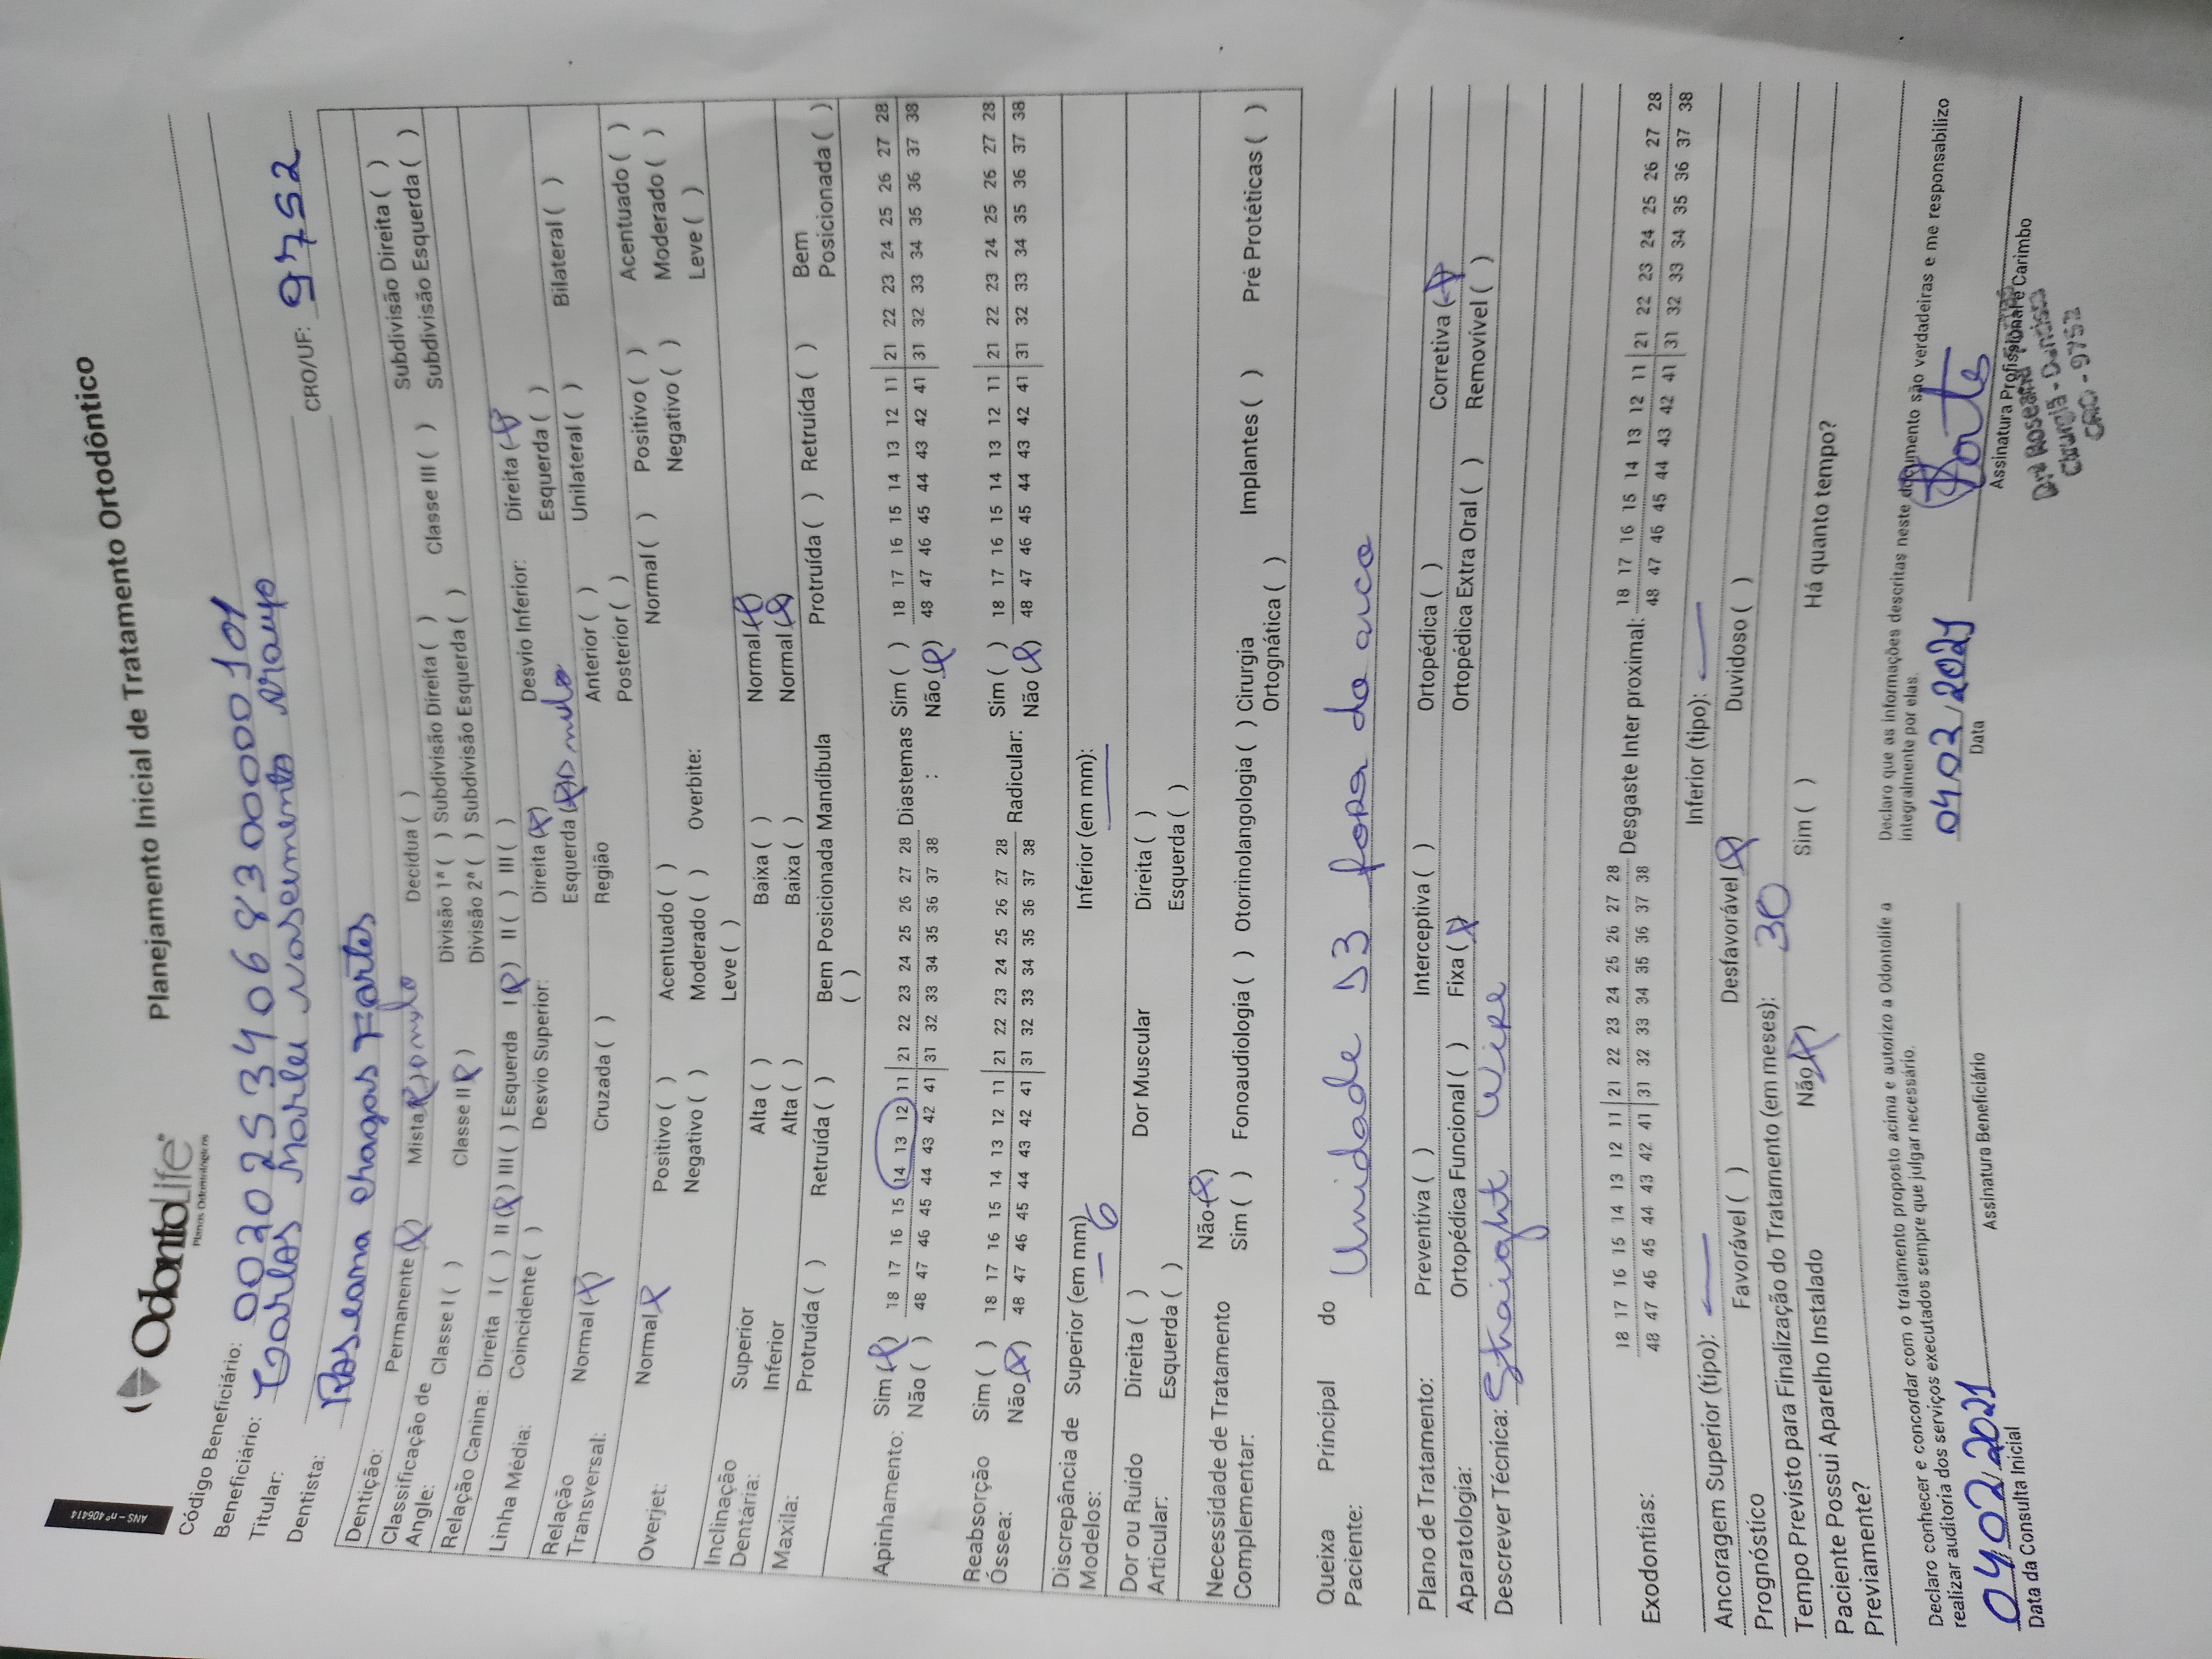 ANS - nº 406414
OdontoLife
Planos Odontológicos
Planejamento Inicial de Tratamento Ortodôntico
Código Beneficiário: 00202534068300000101
Beneficiário: Carlos Marlei nascimento Araujo
Titular:
CRO/UF: 9752
Dentista: Roseana Chagas Fortes
Dentição: Permanente (X) Mista (X) anulo Decídua ( )
Classificação de Angle: Classe I ( ) Classe II (X) Divisão 1ª ( ) Subdivisão Direita ( ) Classe III ( ) Subdivisão Direita ( )
Divisão 2ª ( ) Subdivisão Esquerda ( ) Subdivisão Esquerda ( )
Relação Canina: Direita I ( ) II (X) III ( ) Esquerda I (X) II ( ) III ( )
Linha Média: Coincidente ( ) Desvio Superior: Direita (X) Desvio Inferior: Direita (X)
Esquerda (X) anulo Esquerda ( )
Relação Transversal: Normal (X) Cruzada ( ) Região Anterior ( ) Unilateral ( ) Bilateral ( )
Posterior ( )
Overjet: Normal X Positivo ( ) Acentuado ( ) Overbite: Normal ( ) Positivo ( ) Acentuado ( )
Negativo ( ) Moderado ( ) Negativo ( ) Moderado ( )
Leve ( ) Leve ( )
Inclinação Dentária: Superior Alta ( ) Baixa ( ) Normal (X)
Inferior Alta ( ) Baixa ( ) Normal (X)
Maxila: Protruída ( ) Retruída ( ) Bem Posicionada ( ) Mandíbula Protruída ( ) Retruída ( ) Bem Posicionada ( )
Apinhamento: Sim (X) 18 17 16 15 14 13 12 11 21 22 23 24 25 26 27 28 Diastemas : Sim ( ) 18 17 16 15 14 13 12 11 21 22 23 24 25 26 27 28
Não ( ) 48 47 46 45 44 43 42 41 31 32 33 34 35 36 37 38 Não (X) 48 47 46 45 44 43 42 41 31 32 33 34 35 36 37 38
Reabsorção Óssea: Sim ( ) 18 17 16 15 14 13 12 11 21 22 23 24 25 26 27 28 Radicular: Sim ( ) 18 17 16 15 14 13 12 11 21 22 23 24 25 26 27 28
Não (X) 48 47 46 45 44 43 42 41 31 32 33 34 35 36 37 38 Não (X) 48 47 46 45 44 43 42 41 31 32 33 34 35 36 37 38
Discrepância de Modelos: Superior (em mm) - 6 Inferior (em mm):
Dor ou Ruído Articular: Direita ( ) Dor Muscular Direita ( )
Esquerda ( ) Esquerda ( )
Necessidade de Tratamento Complementar: Não (X)
Sim ( ) Fonoaudiologia ( ) Otorrinolangologia ( ) Cirurgia Ortognática ( ) Implantes ( ) Pré Protéticas ( )
Queixa Principal do Paciente: Unidade 13 fora do arco
Plano de Tratamento: Preventiva ( ) Interceptiva ( ) Ortopédica ( ) Corretiva (X)
Aparatologia: Ortopédica Funcional ( ) Fixa (X) Ortopédica Extra Oral ( ) Removível ( )
Descrever Técnica: Straight Wire
Exodontias: 18 17 16 15 14 13 12 11 21 22 23 24 25 26 27 28 Desgaste Inter proximal: 18 17 16 15 14 13 12 11 21 22 23 24 25 26 27 28
48 47 46 45 44 43 42 41 31 32 33 34 35 36 37 38 48 47 46 45 44 43 42 41 31 32 33 34 35 36 37 38
Ancoragem Superior (tipo): — Inferior (tipo): —
Prognóstico Favorável ( ) Desfavorável (X) Duvidoso ( )
Tempo Previsto para Finalização do Tratamento (em meses): 30
Paciente Possui Aparelho Instalado Previamente? Não (X) Sim ( ) Há quanto tempo?
Declaro conhecer e concordar com o tratamento proposto acima e autorizo a Odontolife a
realizar auditoria dos serviços executados sempre que julgar necessário.
Declaro que as informações descritas neste documento são verdadeiras e me responsabilizo
integralmente por elas.
04/02/2021
Data da Consulta Inicial
Assinatura Beneficiário
04/02/2021
Data
Fortes
Assinatura Profissional e Carimbo
Dra Roseana
Cirurgiã-Dentista
CRO - 9752